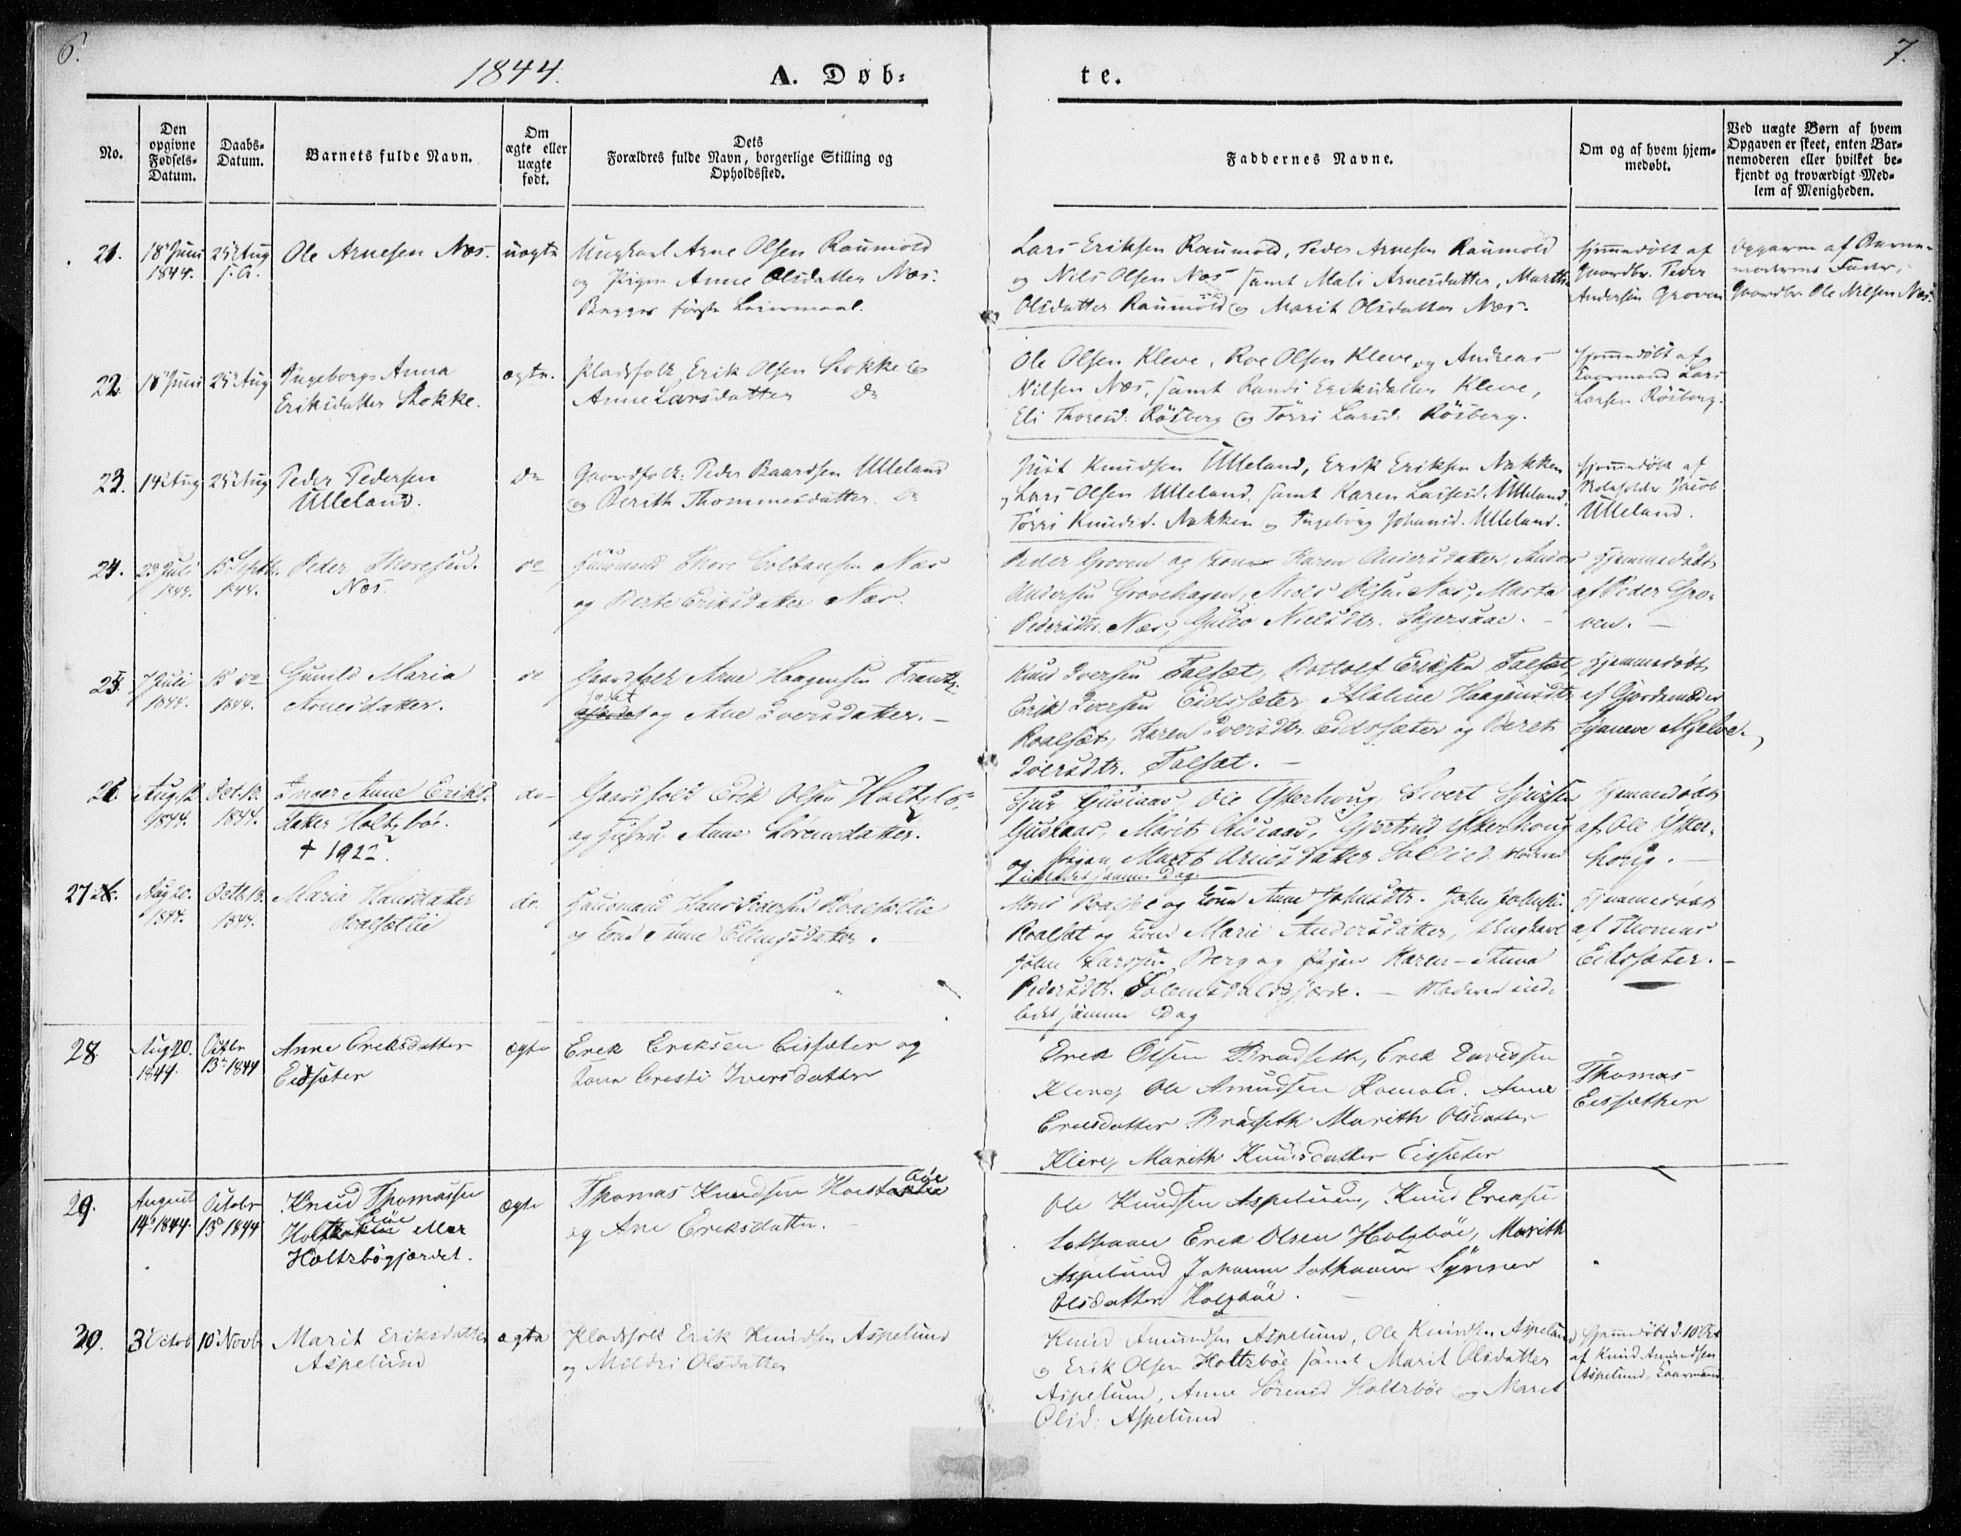 6.
7.
1844.
A. Døb-
te.
No.
Den
opgivne
Fødsels-
Datum.
Daabs-
Datum.
Barnets fulde Navn.
Om
ægte eller
uægte
født.
Dets
Forældres fulde Navn, borgerlige Stilling og
Opholdssted.
Faddernes Navne.
Om og af hvem hjem-
medøbt.
Ved uægte Børn af hvem
Opgaven er skeet, enten Bar-
nemoderen eller hvilket be-
kjendt og troværdigt Med-
lem af Menigheden.
21.
18 Juni
1844.
25 Aug
s. A.
Ole Arnesen Næs.
uægte
Ungkarl Arne Olsen Raumold
og Pigen Anne Olsdatter Næs.
Begges første Leiermaal.
Lars Eriksen Raumold, Peder Arnesen Raumold
og Nils Olsen Næs samt Mali Arnesdatter, Marth
Olsdatter Raumold og Marit Olsdatter Næs.
Hjemmedøbt af
Gaardbr. Peder
Andersen Groven
Opgaven af Barne-
moderens Fader,
Gaardbr Ole Nilsen Næs.
22.
18 Juni
25 Aug
Ingeborg Anna
Eriksdatter Stokke.
ægte.
Pladsfolk Erik Olsen Stokke og
Anne Larsdatter do
Ole Olsen Kleve, Roe Olsen Kleve og Andreas
Nilsen Næs, samt Randi Eriksdatter Kleve,
Eli Thoresd. Røsberg og Torri Larsd. Røsberg.
Hjemmedøbt af
Kaarmand Lars
Larsen Røsberg.
23.
14 Aug
25 Aug
Peder Pedersen
Ulleland.
do
Gaardfolk: Peder Baardsen Ulleland
og Berith Thommesdatter do
Knudsen Ulleland, Erik Eriksen Nakken
Lars Olsen Ulleland, samt Karen Lassesd. Ulleland
Torri Knudsd. Nakken og Ingeborg Johansd. Ulleland.
Hjemmedøbt af
Jacob
Ulleland.
24.
23 Juli
1844.
15 Septb.
1844.
Peder Thoresen
Næs.
do
Huusmand Thore Colbansen Næs
og Berte Eriksdatter Næs.
Peder Groven og Kone Karen Andersdatter, Anders
Andersen Grovehagen, Niels Olsen Næs, Marta
Pedersdtr. Næs, Guleo Nielsdtr. Skjersaae. -
Hjemmedøbt
af Peder Gro-
ven. -
25.
7 Juli
1844.
15 do
1844.
Gunild Maria
Arnesdatter.
do
Gaardfolk Arne Haagensen
og Ane Iversdatter. -
Knud Iversen Talsæt, Bottolf Eriksen Talsæt,
Erik Iversen Eidssæter, Alaline Haagensdtr.
Roalsæt, Karen Iversdtr. Eidssæter og Beret
Iversdtr. Talsæt. -
Hjemmedøbt
af Gjordemoder
Synneve Mjelve.
26.
Aug. 12
1844.
Oct. 13.
1844.
Inger Anne Eriks-
datter Holtzbøe.
+ 1922.
do
Gaardfolk Erik Olsen Holtzbø
og Hustru Anne Sørensdatter.
Sjur Gussiaas, Ole Ytterhoug, Sivert Sjursen
Gusiaas, Marit Gussiaas, Gjertrud Ytterhoug
og Pigen Marit Arnesdatter Sollied. Moderen
Indledet samme Dag.
Hjemmedøbt
af Ole Ytter-
houg. -
27.
Aug 20.
1844.
Octb 13.
1844.
Maria Hansdatter
Roalsætlie
do.
Huusmand Hans Roalsætlie
og Kone Anne Ellingsdatter.
Mons Roalsæt og Kone Anne Johnsdtr. John Johnsen
Roalsæt og Kone Marie Andersdatter, Ungkarl
John Larssen Berg og Pigen Karen-Anna
Pedersdtr. Solemsdalsgjerde. - Moderen ind-
ledet samme Dag
Hjemmedøbt
af Thomas
Eidssæter. -
28
Aug 20.
1844.
Octbr
13 1844
Anne Ereksdatter
Eidsæter
ægte
Erek Ereksen Eissæter og
Kone Cresti Iversdatter
Erek Olsen Bradseth, Erek Endressen
Kleve, Ole Amundsen Romold. Anne
Ereksdatter Bradseth Marith Olsdatter
Kleve, Marith Knudsdatter Eissæter
Thomas
Eessæther
29.
August
14 1844.
Octobr
13 1844
Knud Thomassen
bøe
eller
Holtzbøgjærdet.
ægte
Thomas Knudsen
bøe
og Ane Ereksdatter.
Ole Knudsen Aspelund, Knud Ereksen
Sathaaen Erek Olsen Holzbøe, Marith
Aspelund Johanne Sathaaen Synnev
Olsdatter Holzbøe.
30.
3 Octob
10 Novb
Marit Eriksdatter
Aspelund
ægte
Pladsfolk Erik Knudsen Aspelund
og Meldri Olsdatter
Knud Amundsen Aspelund, Ole Knudsen Aspelund
og Erik Olsen Holtzbøe samt Marit Olsdatter
Aspelund, Anne Sørensd Holtzbøe og Maret
Olsd: Aspelund
Hjemmedøbt d. 10 Oct
af Knud Amundsen
Aspelund, Kaarmand